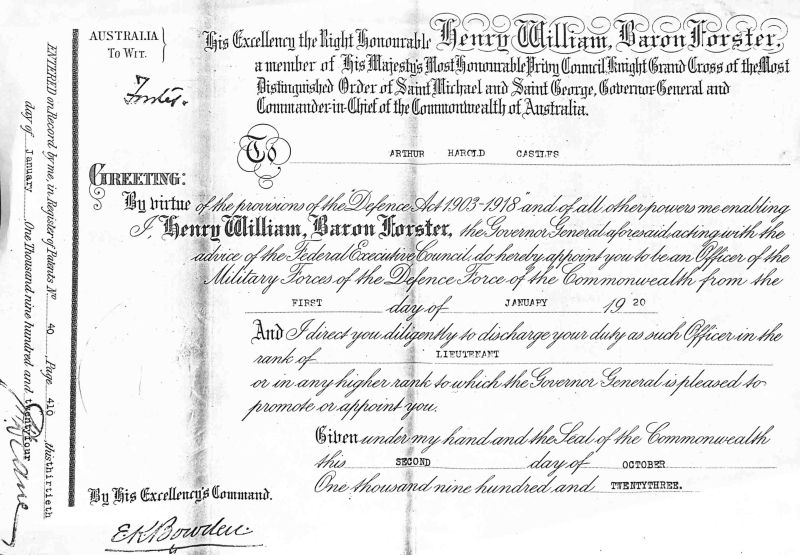 AUSTRALIA
To Wit.
Forster.
His Excellency the Right Honourable Henry William, Baron Forster,
a member of His Majesty's Most Honourable Privy Council, Knight Grand Cross of the Most
Distinguished Order of Saint Michael and Saint George, Governor-General and
Commander-in-Chief of the Commonwealth of Australia.
To ARTHUR HAROLD CASTLES
GREETING:
By virtue of the provisions of the "Defence Act 1903-1918" and of all other powers me enabling
I, Henry William, Baron Forster, the Governor General aforesaid acting with the
advice of the Federal Executive Council, do hereby appoint you to be an Officer of the
Military Forces of the Defence Force of the Commonwealth from the
FIRST day of JANUARY 19 20
And I direct you diligently to discharge your duty as such Officer in the
rank of LIEUTENANT
or in any higher rank to which the Governor General is pleased to
promote or appoint you.
Given under my hand and the Seal of the Commonwealth
this SECOND day of OCTOBER
One thousand nine hundred and TWENTYTHREE.
By His Excellency's Command.
E K Bowden
ENTERED on Record by me, in Register of Patents No 40 Page 410 this thirtieth
day of January One Thousand nine hundred and twentyfour